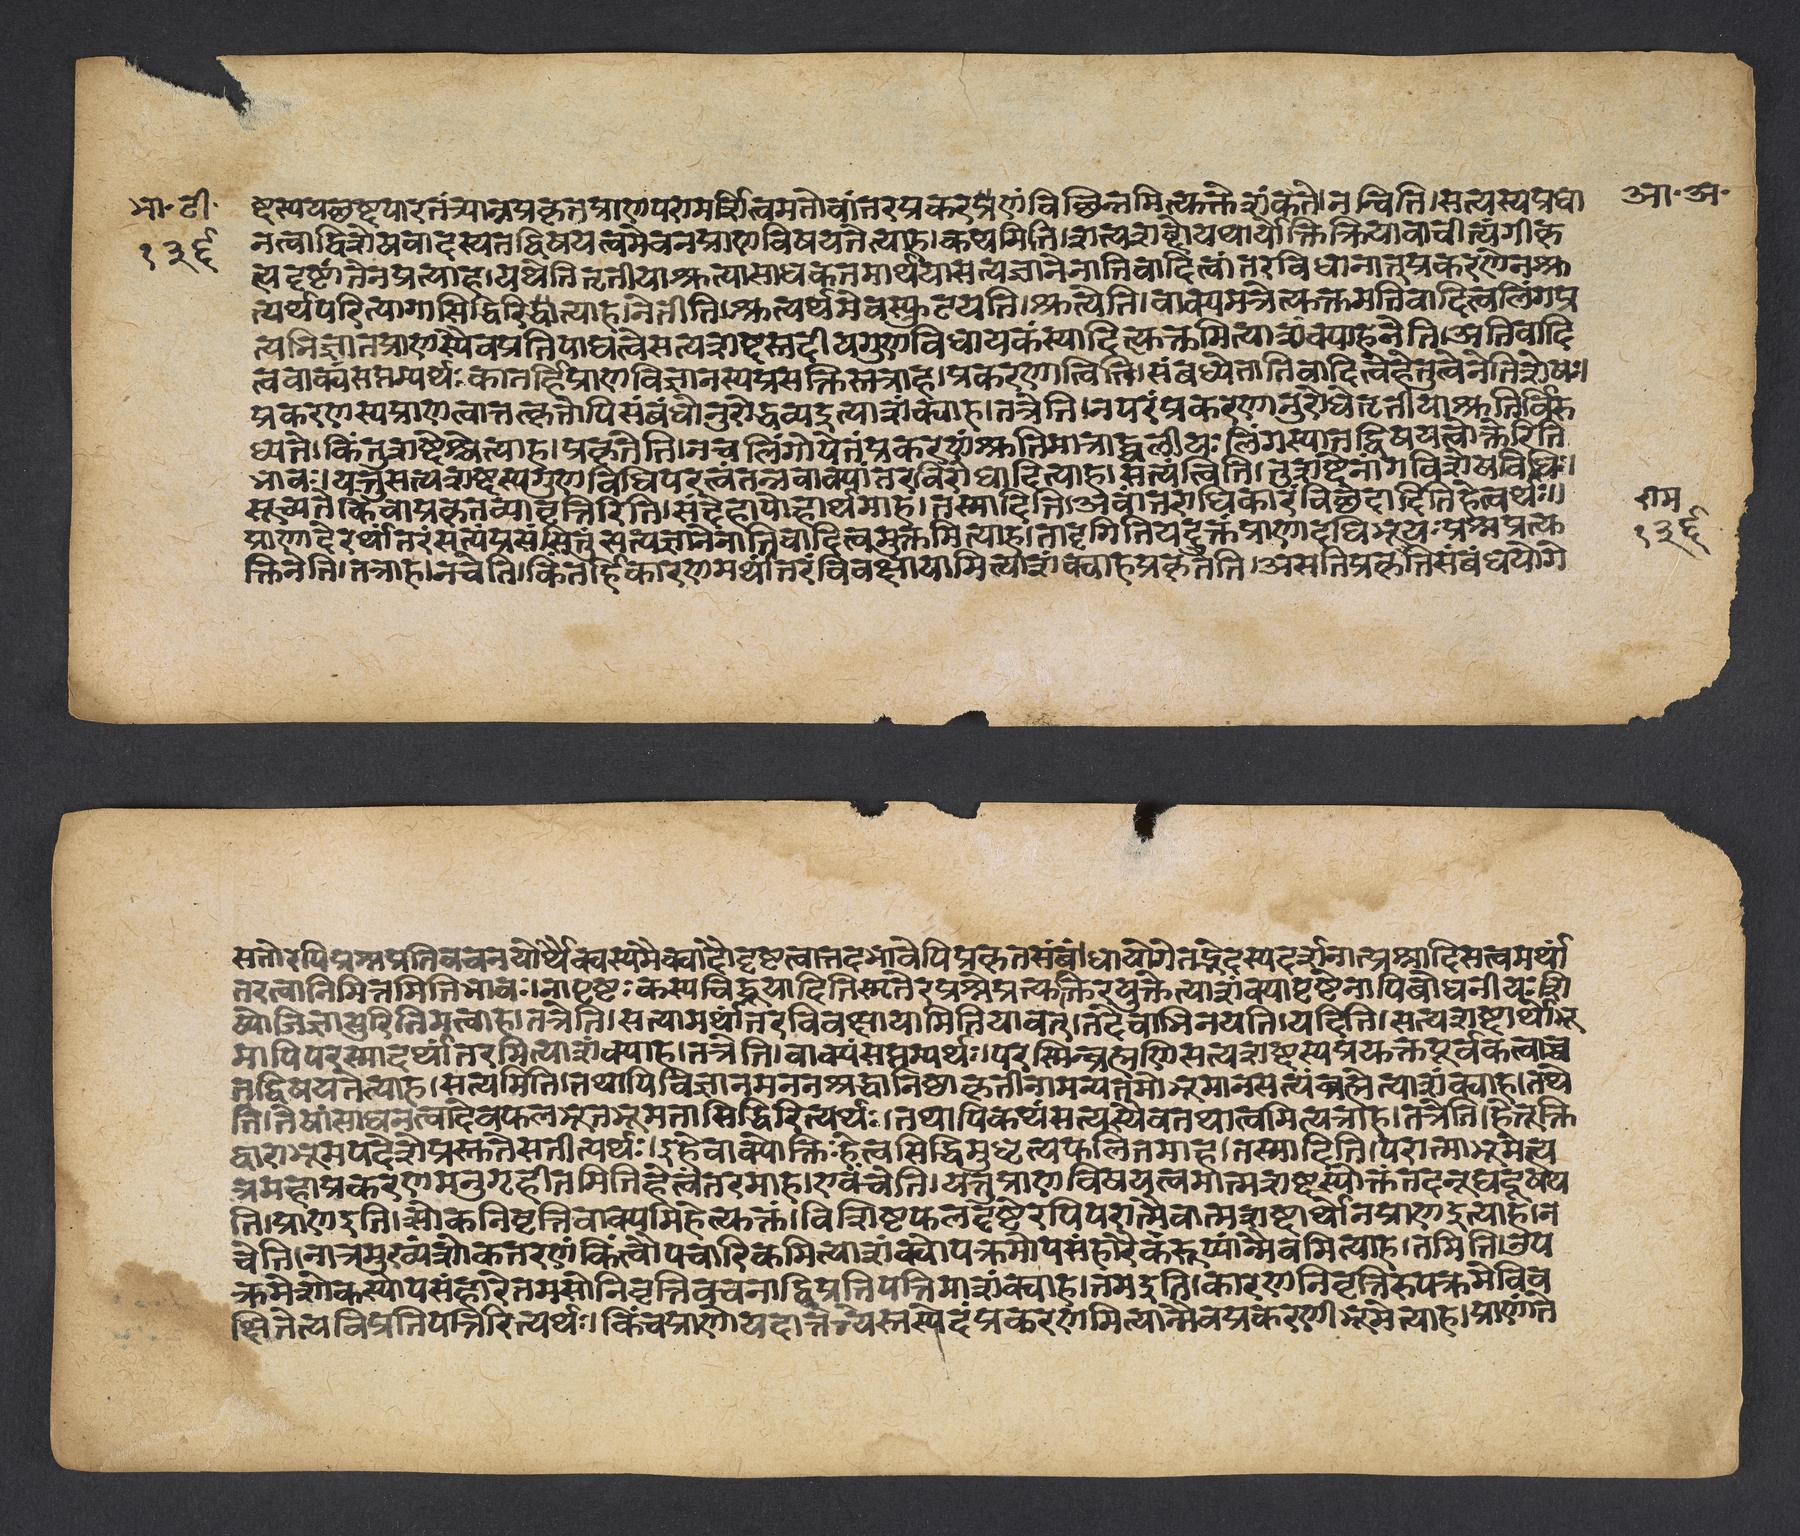 भा॰ टी॰
१३६
आ॰ अ॰
त्वाद्विशेषवादस्यतद्विषयत्वमेवनप्राणविषयतेत्याह।कथमिति।
त्यदृष्टांतेनप्रत्याह।यथेतितृतीयाश्रुत्यासाधकतमार्थयासत्यज्ञानेनातिवादित्वांतरविधानात्प्रकरणेनश्रु
त्यर्थपरित्यागासिद्धिरित्याह।नेतीति।श्रुत्यर्थमेवस्फुटयति।श्रुत्येति।वाक्यमत्रेत्युक्तमतिवादित्वलिंगप्र
त्यभिज्ञातप्राणस्यैवप्रतिपाद्यत्वेसत्यशब्दस्तदीयगुणविधायकंस्यादित्युक्तमित्याशंक्याहनेति।अतिवादि
त्ववाक्यंसप्तम्यर्थः।कातर्हिप्राणविज्ञानस्यप्रसक्तिस्तत्राह।प्रकरणात्त्विति।संबध्येतातिवादित्वेहेतुत्वेनेतिशेषः।
प्रकरणस्यप्राणत्वात्तत्कृतोपिसंबंधोनुरोद्धव्यइत्याशंक्याह।तत्रेति।नपरंप्रकरणानुरोधेतृतीयाश्रुतिर्विरु
ध्यते।किंतुशब्दश्चेत्याह।प्रकृतेति।नचलिंगोपेतंप्रकरणंश्रुतिमात्राद्बलीयः।लिंगस्यातद्विषयत्वोक्तेरिति
भावः।यत्तुसत्यशब्दस्यगुणविधिपरत्वंतन्नवाक्यांतरविरोधादित्याह।सत्यंत्विति।
सूच्यते।किंवाप्रकृतव्यावृत्तिरिति।संदेहापोहार्थमाह।तस्मादिति।अवांतराधिकारविछेदादितिहेत्वर्थः॥
प्राणादेरर्थांतरंसत्यंप्रसंसितुंसत्यज्ञानेनातिवादित्वमुक्तमित्याह।तादृगितियदुक्तंप्राणादधिभूयःप्रश्नप्रत्यु
क्तिर्नेति।तत्राह।नचेति।किंतर्हिकारणमर्थांतरविवक्षायामित्याशंक्याहप्रकृतेति।असतिप्रकृतिसंबंधयोगे
राम
१३६
सतोरपिप्रश्नप्रतिवचनयोरर्थैक्यस्यमैक्यादौदृष्टत्वात्तदभावेपिप्रकृतसंबंधायोगेतद्भेदस्यदर्शनात्प्रश्नादिसत्वमर्थां
तरत्वानिमित्तमितिभावः।नापृष्टःकस्यचिद्ब्रूयादितिस्मृतेरप्रश्नेप्रत्युक्तिरयुक्तेत्याशंक्यापृष्टेनापिबोधनीयःशि
ष्योजिज्ञासुरितिमत्वाह।तत्रेति।सत्यामर्थांतरविवक्षायामितियावत्।तदेवाभिनयति।यदिति।सत्यशब्दार्थोभू
मापिपरस्मादर्थांतरमित्याशंक्याह।तत्रेति।वाक्यंसप्तम्यर्थः।परस्मिन्ब्रह्मणिसत्यशब्दस्यप्रयुक्तपूर्वकत्वाच्च
तद्विषयतेत्याह।सत्यमिति।तथापिविज्ञानमननश्रद्धानिष्ठाकृतीनामन्यतमोभूमानसत्यंब्रह्मेत्याशंक्याह।तथे
ति।तेषांसाधनत्वादेवफलभूतभूमतासिद्धिरित्यर्थः।तथापिकथंसत्यस्यैवतथात्वमित्यत्राह।तत्रेति।हेतूक्ति
द्वाराभूमपदेशेप्रस्तुतेसतीत्यर्थः।इहैवाक्योक्तिःहेत्वसिद्धिमुद्धृत्यफलितमाह।तस्मादिति।परात्माभूमेत्य
त्रमहाप्रकरणमनुगृहीतमितिहेत्वंतरमाह।एवंचेति।यत्तुप्राणविषयत्वमात्मशब्दस्योक्तंतदनूद्यदूषय
ति।प्राणइति।शोकनिवृत्तिवाक्यमिहेत्युक्तं।विशिष्टफलदृष्टेरपिपरात्मैवात्मशब्दार्थोनप्राणइत्याह।न
चेति।नात्रमुख्यंशोकतरणंकिंत्वौपचारिकमित्याशंक्योपक्रमोपसंहारैकरूप्यान्मैवमित्याह।तमिति।उप
क्रमेशोकस्योपसंहारेतमसोनिवृत्तिवचनाद्विप्रतिपत्तिमाशंक्याह।तमइति।कारणनिवृत्तिरुपक्रमेविव
क्षितेत्यविप्रतिपत्तिरित्यर्थः।किंचप्राणोयदात्मन्यस्तस्येदंप्रकरणमित्यात्मैवप्रकरणीभूमेत्याह।प्राणांत